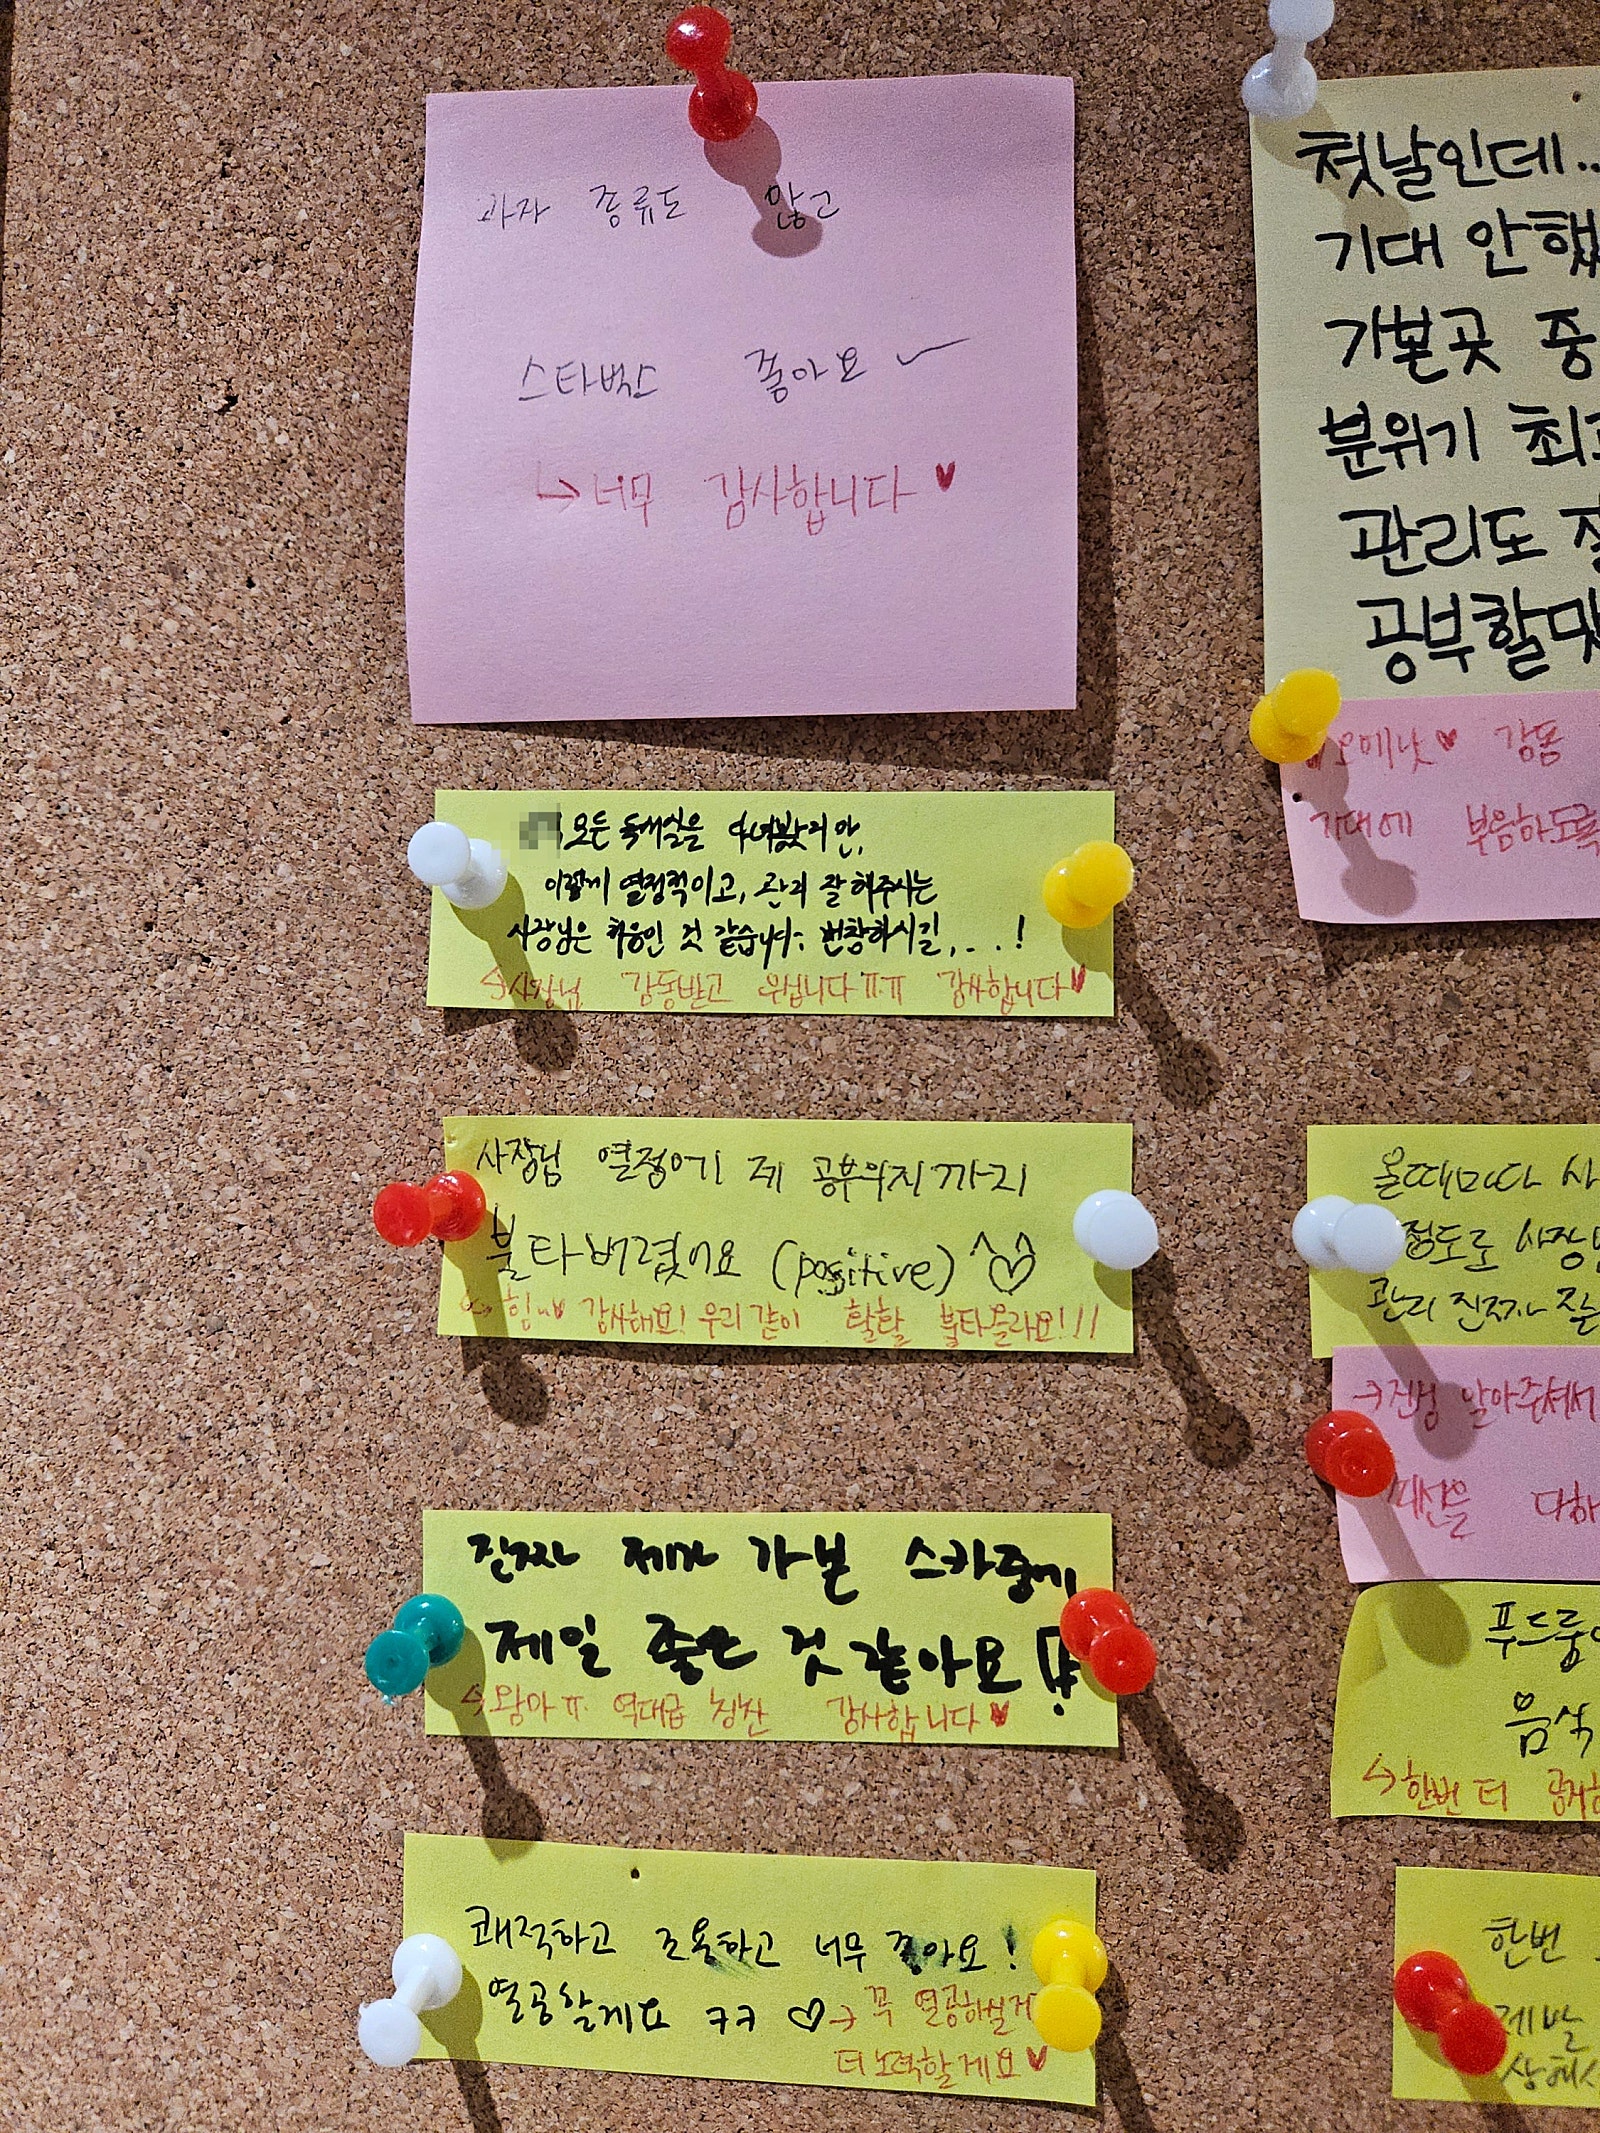 과자 종류도 많고
스타벅스 좋아요
↳너무 감사합니다♥
모든 독서실은 다녀봤지만,
이렇게 열정적이고, 관리 잘 해주시는
사장님은 처음인 것 같습니다. 번창하시길...!
↳사장님 감동받고 웁니다ㅠㅠ 감사합니다♥
사장님 열정이 제 공부의지까지
불타버렸어요 (positive) ^♡^
감사해요! 우리같이 활활 불타올라요!!!
진짜 제가 가본 스카중에
제일 좋은 것 같아요!!
↳왕마ㅠ 역대급 칭찬 감사합니다♥
쾌적하고 조용하고 너무 좋아요!
열공할게요 ㅋㅋ ♡
→꼭 열공하실게
더노력할게요♥
첫날인데..
기대 안했
가본곳 중
분위기 최고
관리도 잘
공부할맛
오메낫♥ 감동
기대에 부응하도록
올때마다 사
정도로 사장님
관리 진짜 잘
→진심 알아주셔서
최선을 다하
푸드룸
음식
↳한번 더 공지
한번
제발